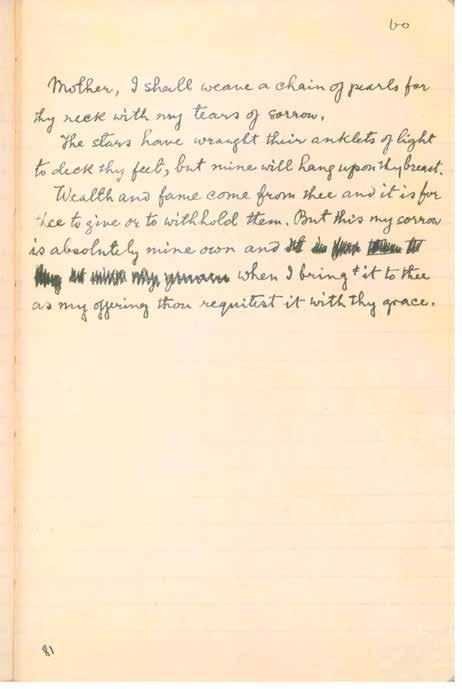 60
Mother, I shall weave a chain of pearls for
thy neck with my tears of sorrow.
The stars have wraught their anklets of light
to deck thy feet, but mine will hang upon thy breast.
Wealth and fame come from thee and it is for
thee to give or to withhold them. But this my sorrow
is absolutely mine own and
when I bring it to thee
as my offering thou requitest it with thy grace.
81